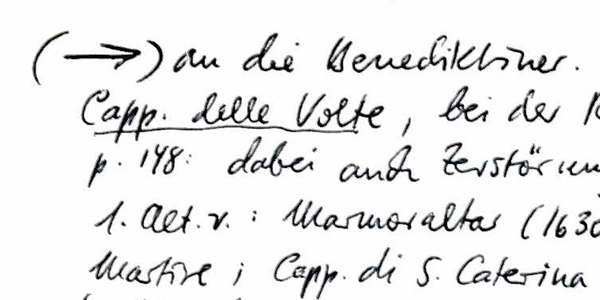 (→) an die Benediktiner.
Capp. delle Volte, bei der
p. 148: dabei auch
1. Alt. r. : Marmoraltar (1630
Martire ; Capp. di S. Caterina